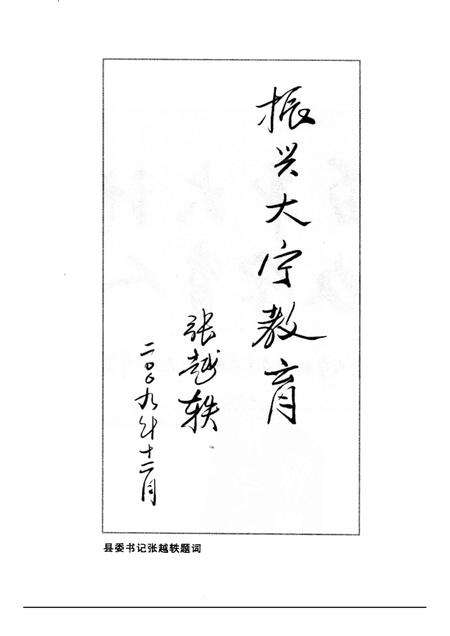 振兴大宁教育
张越轶
二〇〇九年十二月
县委书记张越轶题词